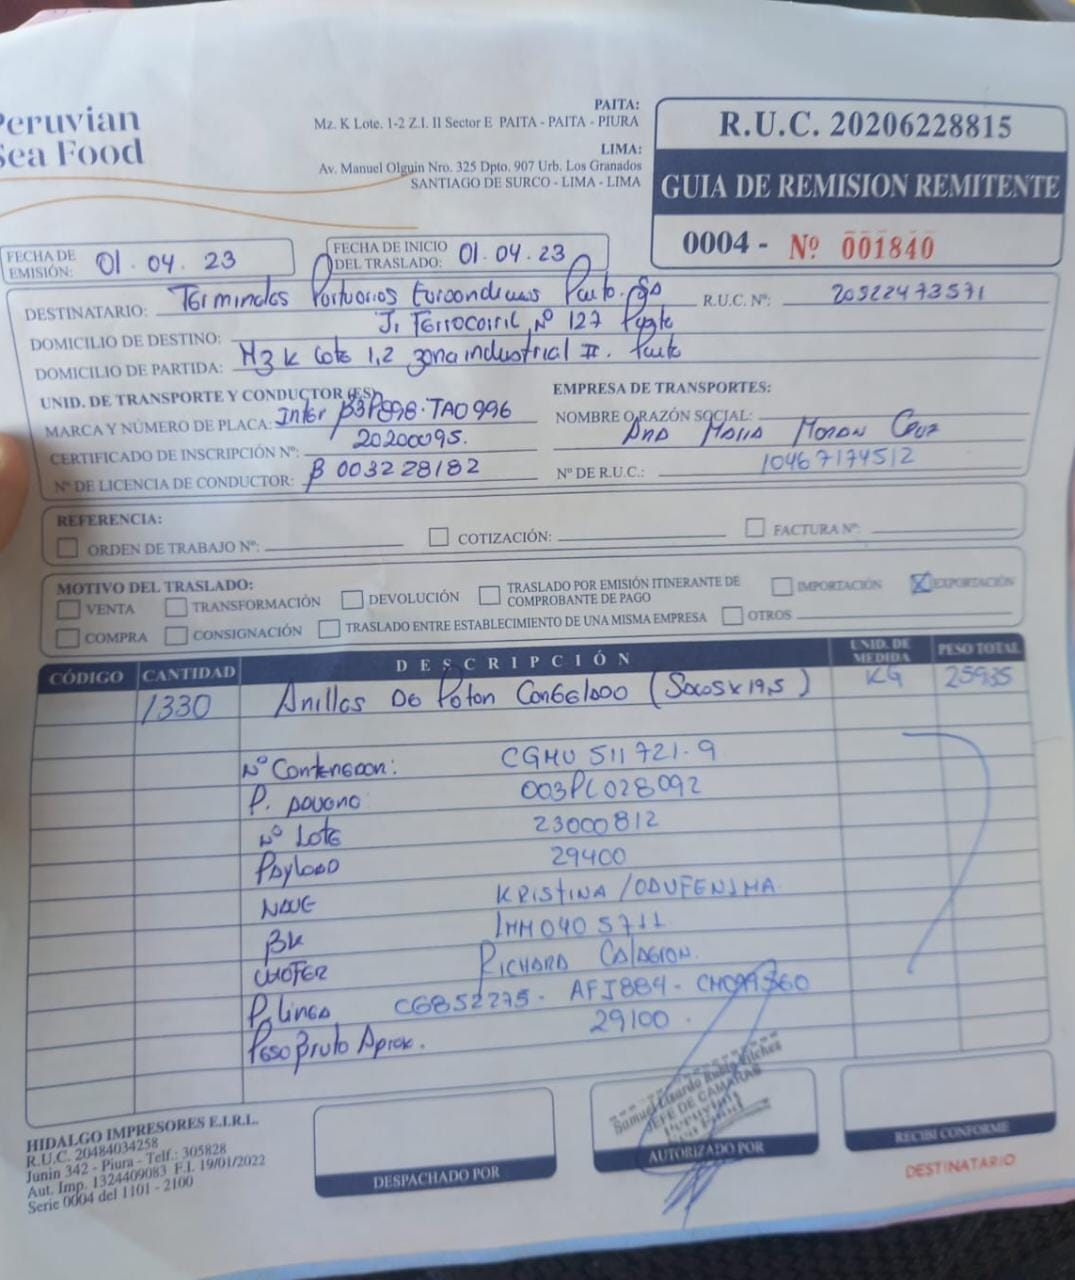 Peruvian
Sea Food
PAITA:
Mz. K Lote. 1-2 Z.I. II Sector E PAITA - PAITA - PIURA
LIMA:
Av. Manuel Olguin Nro. 325 Dpto. 907 Urb. Los Granados
SANTIAGO DE SURCO - LIMA - LIMA
R.U.C. 20206228815
GUIA DE REMISION REMITENTE
0004 - Nº 001840
FECHA DE EMISIÓN: 01.04.23
FECHA DE INICIO DEL TRASLADO: 01.04.23
DESTINATARIO: Terminales Portuarios Euroandinos Paita. SA R.U.C. Nº: 20522473571
DOMICILIO DE DESTINO: Jr Ferrocarril Nº 127 Payta
DOMICILIO DE PARTIDA: Mz K Lote 1,2 zona industrial II. Paita
UNID. DE TRANSPORTE Y CONDUCTOR (ES)
MARCA Y NÚMERO DE PLACA: Inter TAO996
CERTIFICADO DE INSCRIPCIÓN Nº: 20200095.
Nº DE LICENCIA DE CONDUCTOR: B 00328182
EMPRESA DE TRANSPORTES:
NOMBRE O RAZÓN SOCIAL: Ana Maria Moran Cruz
Nº DE R.U.C.: 10467174512
REFERENCIA:
ORDEN DE TRABAJO Nº: COTIZACIÓN: FACTURA Nº:
MOTIVO DEL TRASLADO:
VENTA TRANSFORMACIÓN DEVOLUCIÓN TRASLADO POR EMISIÓN ITINERANTE DE COMPROBANTE DE PAGO IMPORTACIÓN EXPORTACIÓN
COMPRA CONSIGNACIÓN TRASLADO ENTRE ESTABLECIMIENTO DE UNA MISMA EMPRESA OTROS
CÓDIGO CANTIDAD DESCRIPCIÓN UNID. DE MEDIDA PESO TOTAL
1330 Anillas De Poton Congelado (Sacos x 19,5) KG 25935
Nº Contenedor: CGMU 511721.9
P. aduana 003PL028092
Nº Lote 23000812
Payload 29400
Nave KRISTINA/
BK 5711
CHOFER RICHARD
P. Linea CG852275 - AFJ884 -
Peso Bruto Aprox. 29100.
HIDALGO IMPRESORES E.I.R.L.
R.U.C. 20484034258
Junin 342 - Piura - Telf.: 305828
Aut. Imp. 1324409083 F.I. 19/01/2022
Serie 0004 del 1101 - 2100
DESPACHADO POR
JEFE DE CAMARAS
AUTORIZADO POR
RECIBI CONFORME
DESTINATARIO